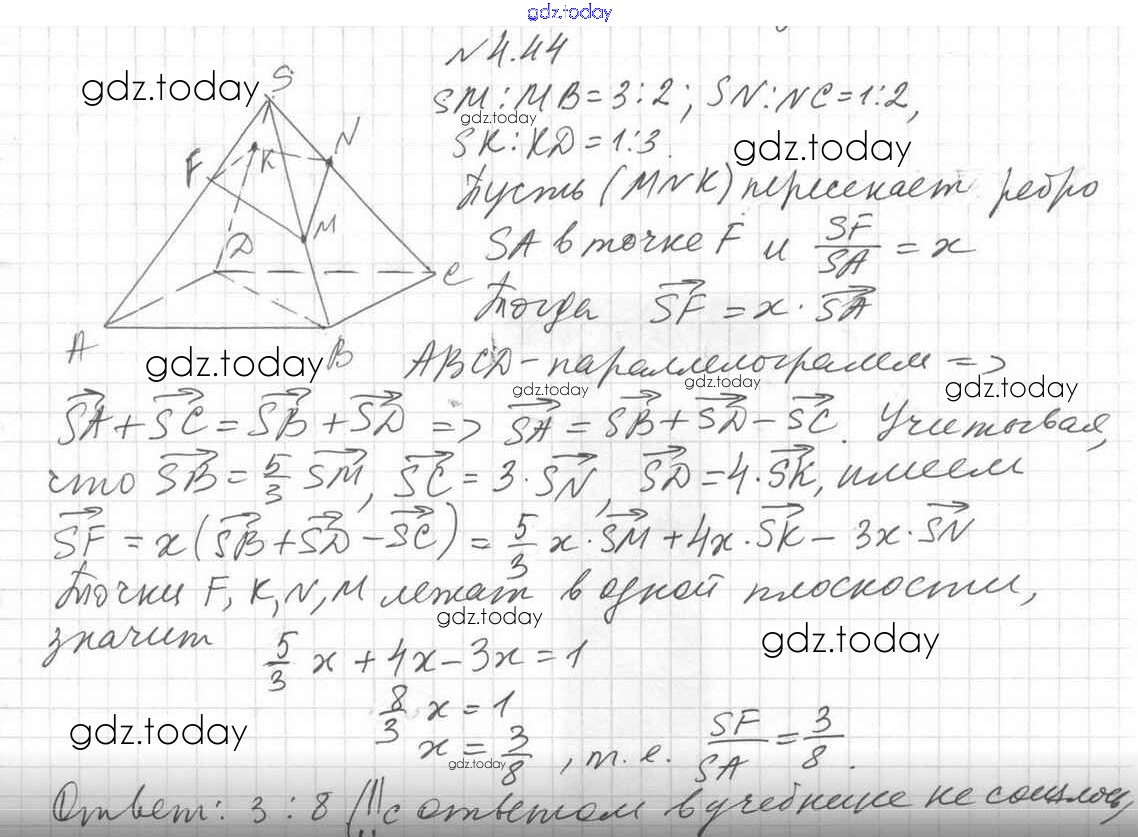 gdz.today
N 4.44
S
gdz.today
SM : MB = 3 : 2 ; SN : NC = 1 : 2,
gdz.today
SK : KD = 1 : 3.
gdz.today
N
F
K
Пусть (MNK) пересекает ребро
M
D
SA в точке F и SF/SA = x
C
Тогда SF = x · SA
A
gdz.today
B
ABCD - параллелограмм =>
gdz.today
gdz.today
gdz.today
SA + SC = SB + SD => SA = SB + SD - SC. Учитывая,
что SB = 5/3 SM, SC = 3 · SN, SD = 4 · SK, имеем
SF = x (SB + SD - SC) = 5/3 x · SM + 4x · SK - 3x · SN
Точки F, K, N, M лежат в одной плоскости,
gdz.today
gdz.today
значит
5/3 x + 4x - 3x = 1
8/3 x = 1
gdz.today
x = 3/8, т.е. SF/SA = 3/8.
gdz.today
Ответ: 3 : 8 (!! с ответом в учебнике не сошлось,